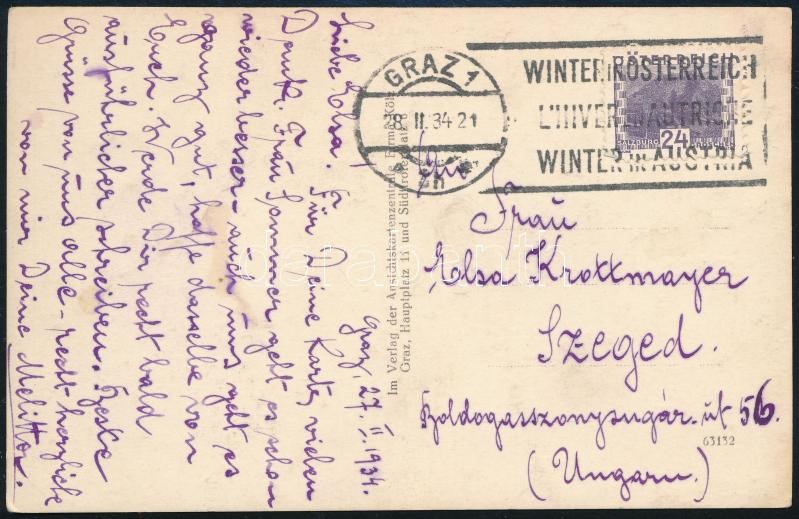 Graz, 27. II. 1934.
Liebe Elsa! Für Deine Karte, vielen
Dank. Frau Sommer geht es schon
wieder besser - auch uns geht es
ganz gut, hoffe dasselbe von
Euch. Werde Dir recht bald
ausführlicher schreiben. Beste
Grüsse von uns alle - recht herzliche
von mir Deine Melitta.
Im Verlag der Ansichtskartenzentrale Firma Köl
Graz, Hauptplatz 11 und Südtirolerplatz
GRAZ 1
28. II. 34 21
WINTER IN ÖSTERREICH
L'HIVER EN AUTRICHE
WINTER IN AUSTRIA
ÖSTERREICH
SALZBURG
24
Frau
Elsa Krottmayer
Szeged.
Boldogasszonysugár-út 56.
63132
(Ungarn)
darabanth